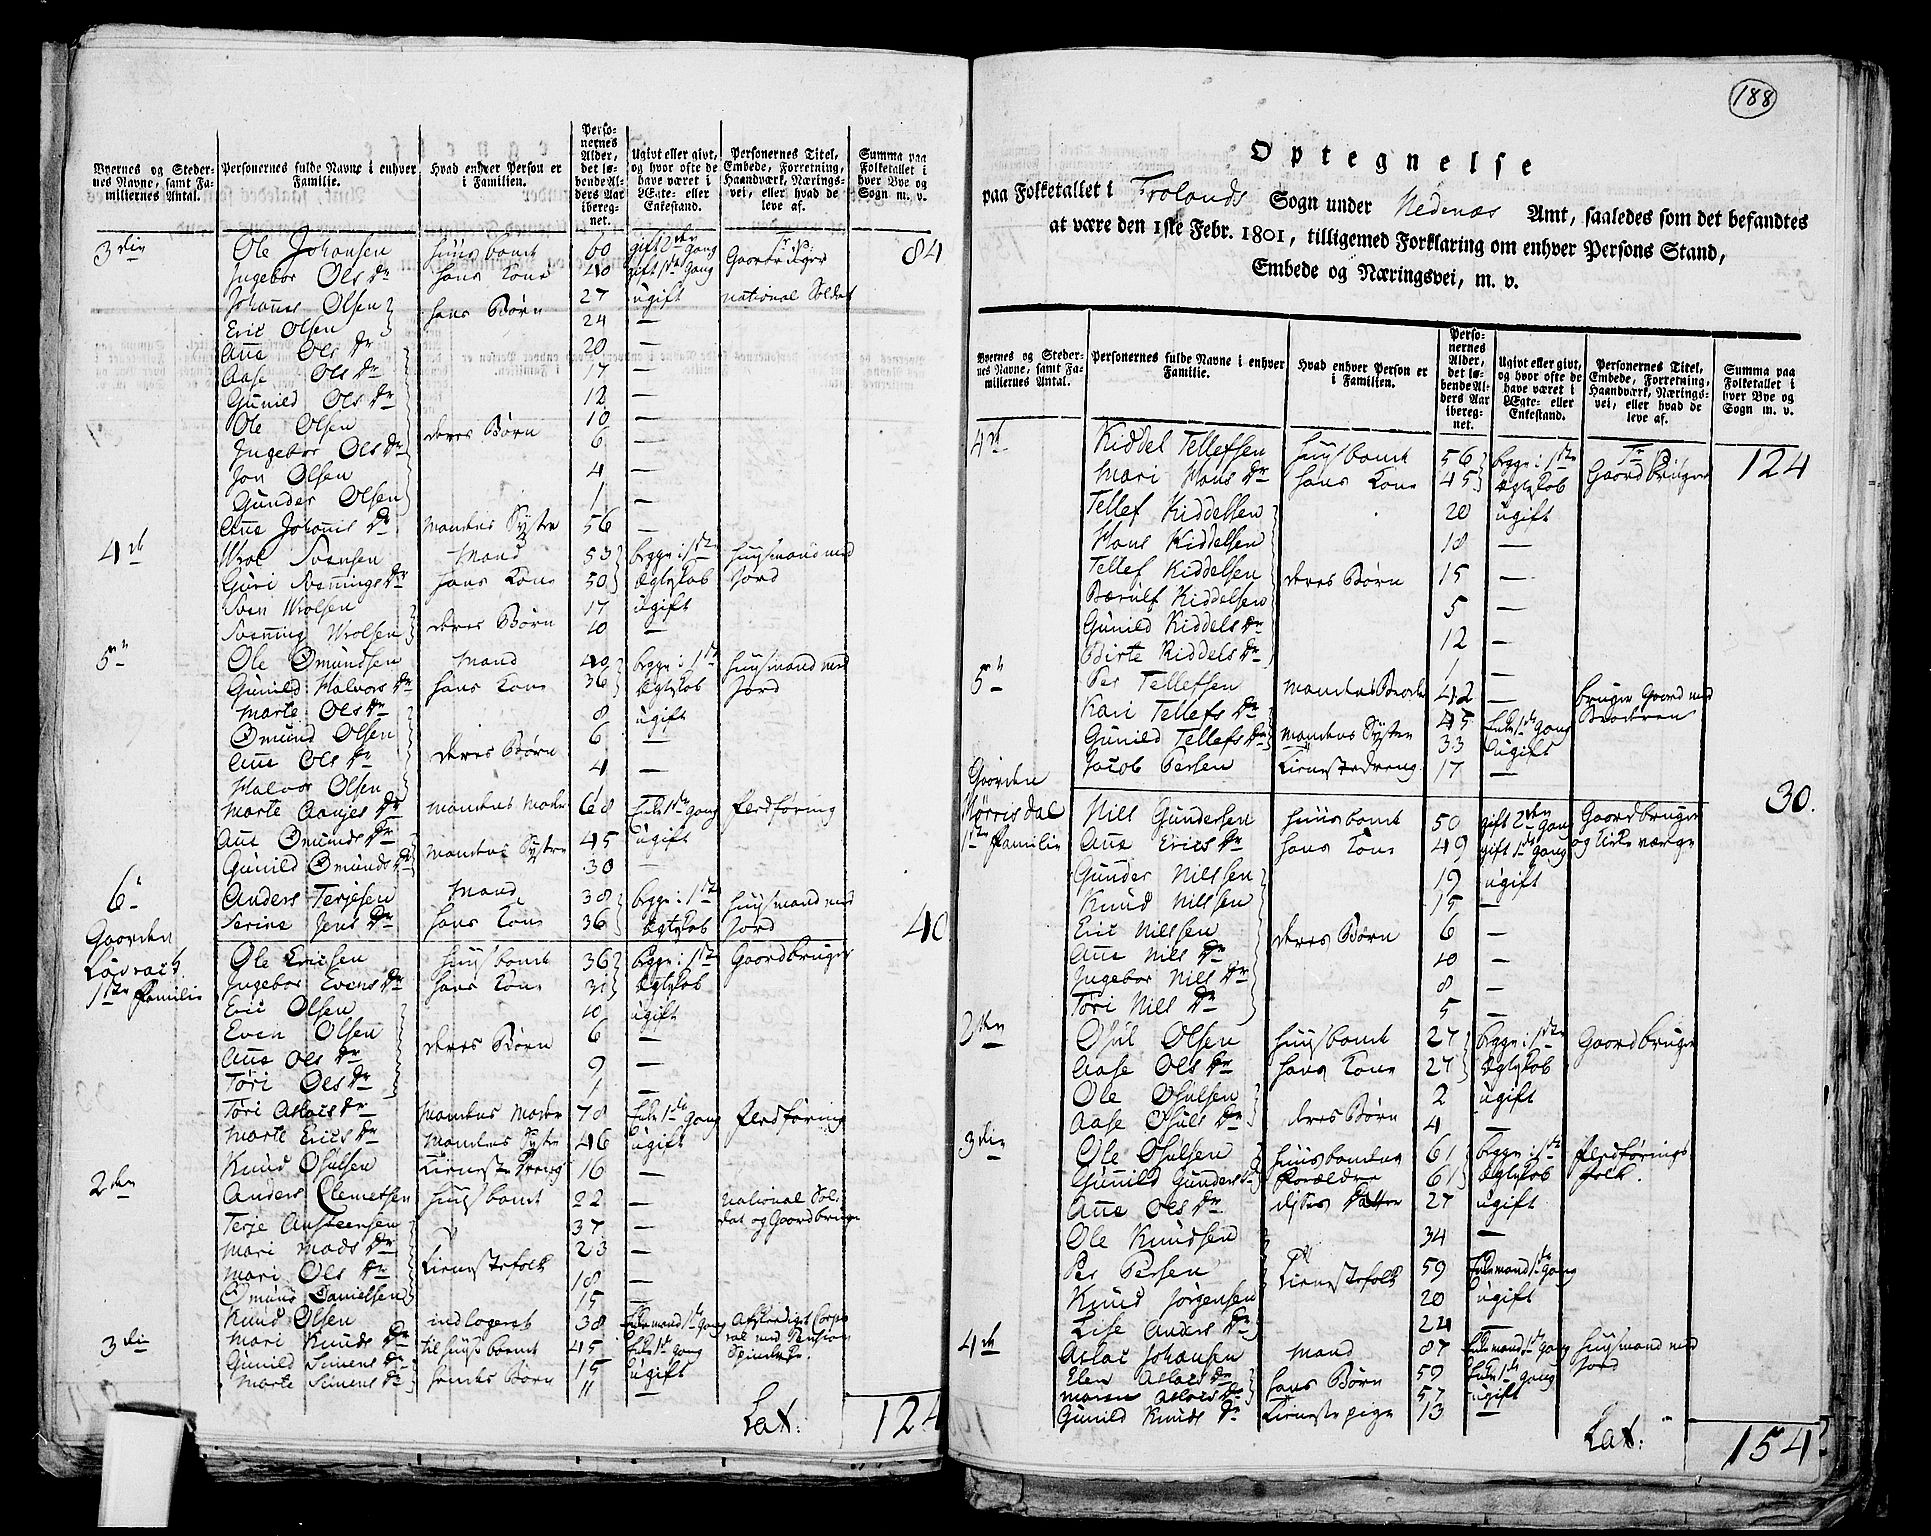 Byernes og Stedernes Navne, samt Familiernes Antal.
Personernes fulde Navne i enhver Familie.
Hvad enhver Person er i Familien.
Personernes Alder, det løbende Alders Aar iberegnet.
Ugivt eller givt, og hvor ofte de have været i Ægte- eller Enkestand.
Personernes Titel, Embede, Forretning, Haandværk, Næringsvei, eller hvad de leve af.
Summa paa Folketallet i hver Bye og Sogn m. v.
3die Ole Johansen huusbond 60 gift 2den gang Gaardbruger 84
Ingebor Ols Dr hans Kone 40 gift 1ste gang
Johannes Olsen hans Børn 27 ugift national Soldat
Eric Olsen 24 —
Anne Ols Dr 20 —
Aase Ols Dr 17 —
Gunild Ols Dr 12 —
Ole Olsen deres Børn 10 —
Ingebor Ols Dr 6 —
Jon Olsen 4 —
Gunder Olsen 1 —
Anne Johannis Dr mandens Syster 56 —
4de Wrol Svensen Mand 53 begge i 1ste huusmand med
Guri Svennings Dr hans Kone 50 Ægteskab Jord
Sven Wrolsen 17 ugift
Svenning Wrolsen deres Børn 10 —
5te Ole Omundsen Mand 40 begge i 1ste huusmand med
Gunild Halvors Dr hans Kone 36 Ægteskab Jord
Marte Ols Dr 8 ugift
Omund Olsen 6 —
Anne Ols Dr deres Børn 4 —
Halvor Olsen 1
Marte Aanjes Dr mandens Moder 68 Enke 1ste gang Federføring
Anne Omunds Dr mandens Syster 45 ugift
Gunild Omunds Dr 30 —
6te Anders Terjesen Mand 38 begge i 1ste huusmand med
Serine Jens Dr hans Kone 36 Ægteskab Jord 40
Gaarden
1ste Familie
Ole Ericsen huusbond 36 begge i 1ste Gaardbruger
Ingebor Evens Dr hans Kone 31 Ægteskab
Eric Olsen 10 ugift
Even Olsen 6 —
Anne Ols Dr deres Børn 9 —
Tøri Ols Dr 1 —
Tøri Aslacs Dr Mandens Moder 78 Enke 1ste gang Federføring
Marte Erics Dr Mandens Syster 46 ugift
Knud Osulsen tieneste Dreng 16 —
2den Anders Clemetsen huusbond 22 — national Sol-
Terje Ansteensen 37 — dat og Gaardbruger
Mari Mads Dr tienestefolk 23 —
Mari Ols Dr 18 —
Omund Danielsen 15 —
Knud Olsen indlogeret 38 Enkemand 1ste gang
3die Mari Knuds Dr til huusbond 45 Enke 1ste gang
Gunild Simens Dr hendes Børn 15 ugift
Marte Simens Dr 11 —
Lat: 124
188
Optegnelse
paa Folketallet i Frolands Sogn under Nedenæs Amt, saaledes som det befandtes
at være den 1ste Febr. 1801, tilligemed Forklaring om enhver Persons Stand,
Embede og Næringsvei, m. v.
Byernes og Stedernes Navne, samt Familiernes Antal.
Personernes fulde Navne i enhver Familie.
Hvad enhver Person er i Familien.
Personernes Alder, det løbende Alders Aar iberegnet.
Ugivt eller givt, og hvor ofte de have været i Ægte- eller Enkestand.
Personernes Titel, Embede, Forretning, Haandværk, Næringsvei, eller hvad de leve af.
Summa paa Folketallet i hver Bye og Sogn m. v.
4de Kiddel Tellefsen huusbond 56 begge i 1ste Gaardbruger 124
Mari Hans Dr hans Kone 45 Ægteskab
Tellef Kiddelsen 20 ugift
Hans Kiddelsen 18 —
Tellef Kiddelsen deres Børn 15 —
Berulf Kiddelsen 5 —
Gunild Kiddels Dr 12 —
Birte Kiddels Dr 1 —
5te Per Tellefsen mandens Broder 42 — bruger Gaard med
Kari Tellefs Dr 45 Enke 1ste gang Broderen
Gunild Tellefs Dr mandens Syster 33 ugift
Jacob Persen tienestedreng 17 —
Gaarden
Mørrisdal
1ste Familie
30.
Nils Gundersen huusbond 50 gift 2den gang Gaardbruger
Anne Erics Dr hans Kone 49 gift 1ste gang og Kirkeværge
Gunder Nilssen 19 ugift
Knud Nilssen 15 —
Eric Nilssen deres Børn 6 —
Anne Nils Dr 10 —
Ingebor Nils Dr 8 —
Tøri Nils Dr 5 —
2den Osul Olsen huusbond 27 begge i 1ste Gaardbruger
Aase Ols Dr hans Kone 27 Ægteskab
Ole Osulsen 2 ugift
Aase Osuls Dr deres Børn 4 —
3die Ole Osulsen huusbondens 61 begge i 1ste Federførings
Gunnild Gunders Dr Forældre 61 Ægteskab folk.
Anne Ols Dr disses Datter 27 ugift
Ole Knudsen 34 —
Per Persen tienestefolk 59 Enkemand 1ste gang
Knud Jørgensen 20 ugift
Lise Anders Dr 22 —
4de Aslac Johansen Mand 87 Enkemand 1ste gang huusmand med
Elen Aslacs Dr hans Børn 59 Enke 1ste gang Jord
Maren Aslacs Dr 57 ugift
Gunild Knuds Dr tienestepige 13 —
Lat: 154